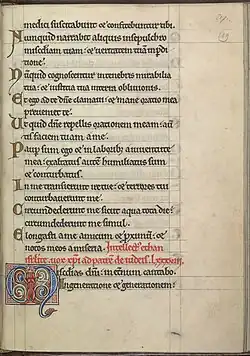 medici suscitabunt et confitebuntur tibi.
Nunquid narrabit aliquis in sepulchro
mịsediam tuam: et veritatem tuam in pdi
tione.
Nunquid cognoscentur in tenebris mirabilia
tua: et iusticia tua in terra oblivionis.
Et ego ad te dñe clamavi: et mane oratio mea
preveniet te.
Ut quid dñe repellis orationem meam: aver
tis faciem tuam a me.
Paup sum ego et in laborib; a iuventute
mea: exaltatus autē humiliatus sum
et conturbatus.
In me transierunt ire tue: et terrores tui
conturbaverunt me.
Circumdederunt me sicut aqua tota die:
circumdederunt me simul.
Elongasti a me amicum et pximum: et
notos meos a miseria. Intellect ethan
israelite. vox xpi ad patrē de iudeis. lxxxviii.
Misedias dñi: in eternum cantabo.
In generatione et generationem: